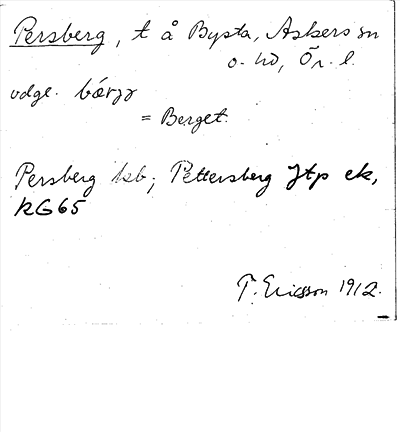 Persberg, t å Bysta, Askers sn
o. hd, Ör. l.
vdge. bárjy
= Berget.
Persberg kb; Pettersberg Jtp ek,
RG65
T. Ericsson 1912.